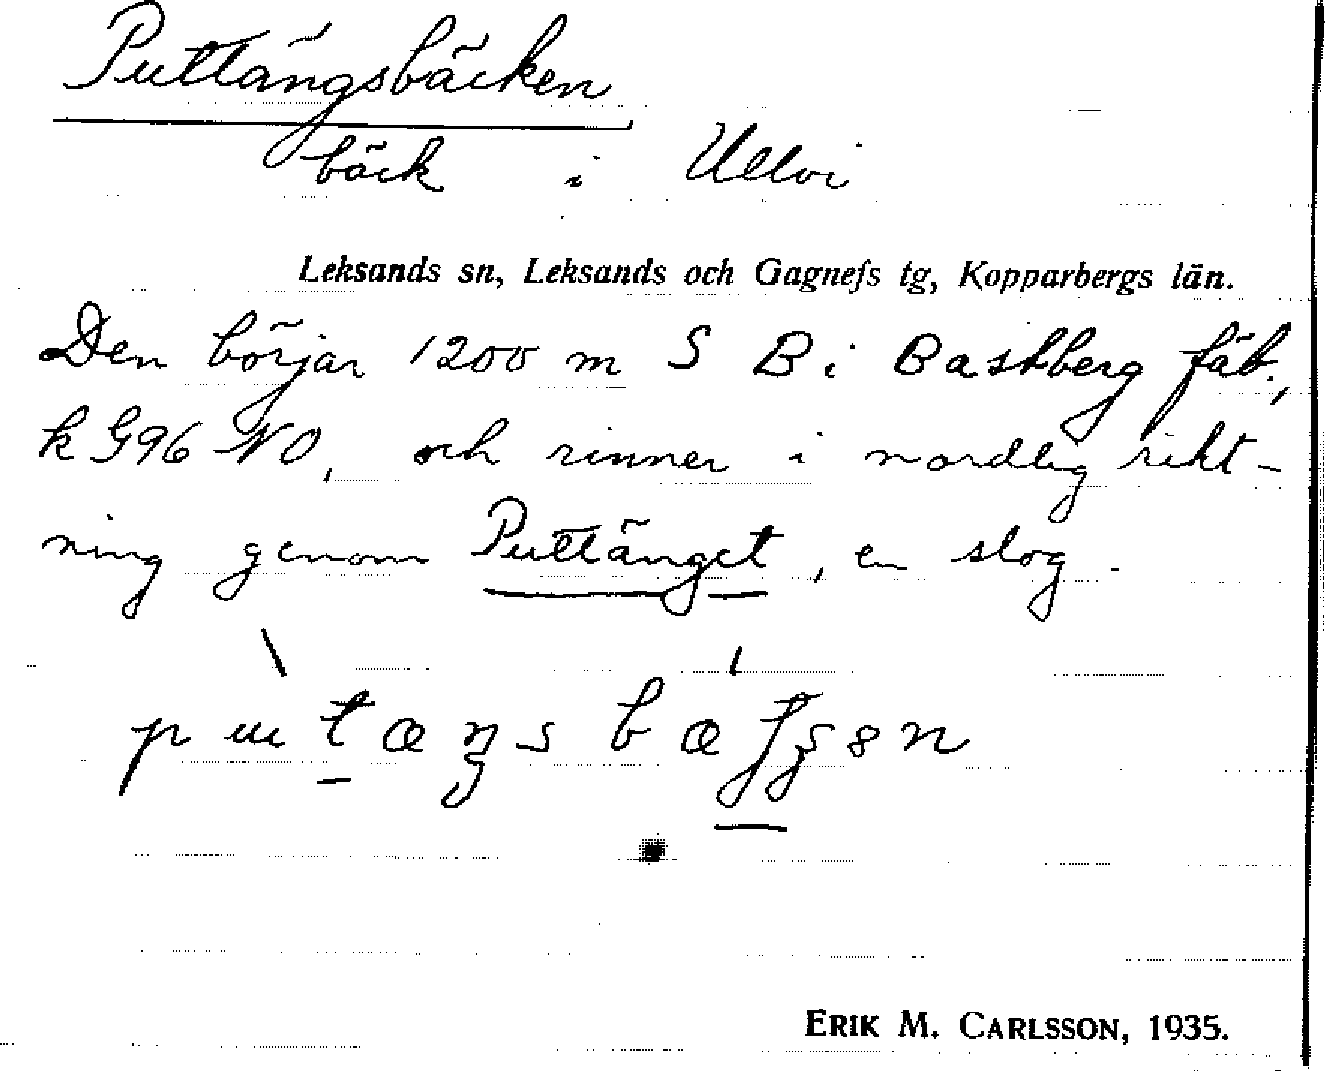 Puttängsbäcken
bäck i Ullvi
Leksands sn, Leksands och Gagnefs tg, Kopparbergs län.
Den börjar 1200 m S B i Bastberg fäb.,
k G96 NO, och rinner i nordlig rikt-
ning genom Puttänget, en slog.
ERIK M. CARLSSON, 1935.